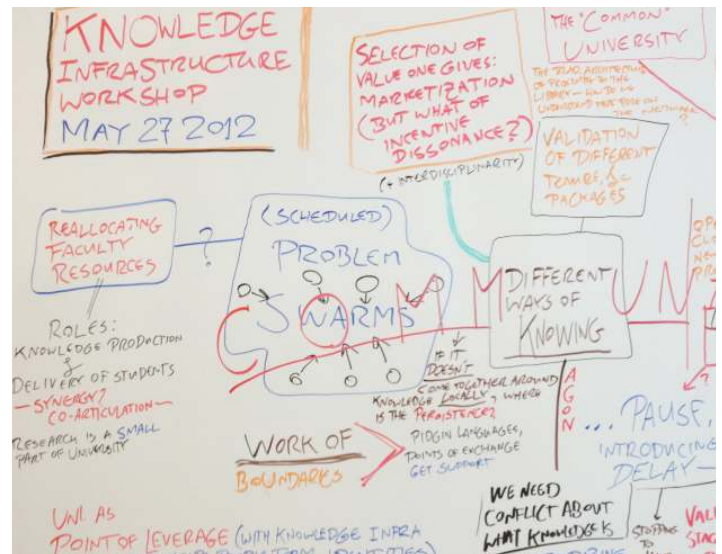 KNOWLEDGE
INFRASTRUCTURE
WORKSHOP
MAY 27 2012
SELECTION OF
VALUE ONE GIVES:
MARKETIZATION
(BUT WHAT OF
INCENTIVE
DISSONANCE?)
(+ INTERDISCIPLINARITY)
THE "COMMON"
UNIVERSITY
LIBRARY
VALIDATION
OF DIFFERENT
TENURE, &c
PACKAGES
REALLOCATING
FACULTY
RESOURCES
?
(SCHEDULED)
PROBLEM
SWARMS
COMMUN
DIFFERENT
WAYS OF
KNOWING
ROLES:
KNOWLEDGE PRODUCTION
&
DELIVERY OF STUDENTS
—SYNERGY?
CO-ARTICULATION—
RESEARCH IS A SMALL
PART OF UNIVERSITY
IF IT
DOESN'T
COME TOGETHER AROUND
KNOWLEDGE LOCALLY, WHERE
IS THE PERSISTENCE?
PIDGIN LANGUAGES,
POINTS OF EXCHANGE
GET SUPPORT
WORK OF
BOUNDARIES
AGON
... PAUSE,
INTRODUCING
DELAY—
?
WE NEED
CONFLICT ABOUT
WHAT KNOWLEDGE IS
STOPPING
TO
UNI. AS
POINT OF LEVERAGE (WITH KNOWLEDGE INFRA
IDENTITIES)